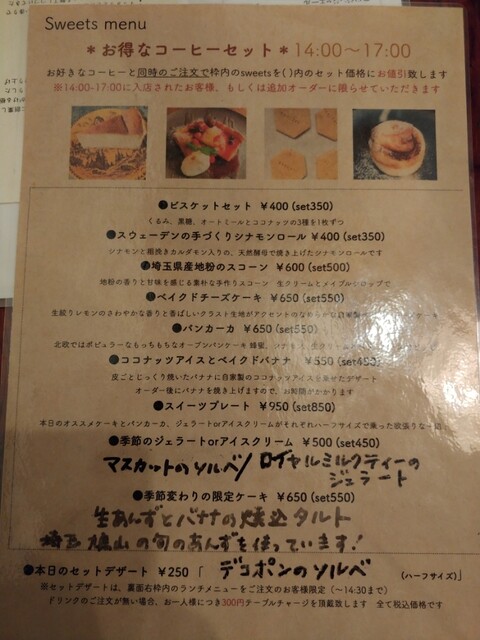 Sweets menu
＊お得なコーヒーセット＊14:00〜17:00
お好きなコーヒーと同時のご注文で枠内のsweetsを( )内のセット価格にお値引致します
※14:00-17:00に入店されたお客様、もしくは追加オーダーに限らせていただきます
●ビスケットセット ￥400 (set350)
くるみ、黒糖、オートミールとココナッツの3種を1枚ずつ
●スウェーデンの手づくりシナモンロール ￥400 (set350)
シナモンと粗挽きカルダモン入りの、天然酵母で焼き上げたシナモンロールです
●埼玉県産地粉のスコーン ￥600 (set500)
地粉の香りと甘味を感じる素朴な手作りスコーン 生クリームとメイプルシロップで
●ベイクドチーズケーキ ￥650 (set550)
生絞りレモンのさわやかな香りと香ばしいクラスト生地がアクセントの
●パンカーカ ￥650 (set550)
北欧ではポピュラーなもっちもちなオーブンパンケーキ 蜂蜜、
●ココナッツアイスとベイクドバナナ ￥550 (set450)
皮ごとじっくり焼いたバナナに自家製のココナッツアイスを乗せたデザート
オーダー後にバナナを焼き上げますので、お時間がかかります
●スイーツプレート ￥950 (set850)
本日のオススメケーキとパンカーカ、ジェラートorアイスクリームがそれぞれハーフサイズで乗った欲張りな一皿
●季節のジェラートorアイスクリーム ￥500 (set450)
マスカットのソルベ/ロイヤルミルクティーの
ジェラート
●季節変わりの限定ケーキ ￥650 (set550)
生あんずとバナナの焼込タルト
埼玉 鳩山の旬のあんずを使っています!
●本日のセットデザート ￥250 「 デコポンのソルベ (ハーフサイズ)」
※セットデザートは、裏面右枠内のランチメニューをご注文のお客様限定 (〜14:30まで)
ドリンクのご注文が無い場合、お一人様につき300円テーブルチャージを頂戴致します 全て税込価格です